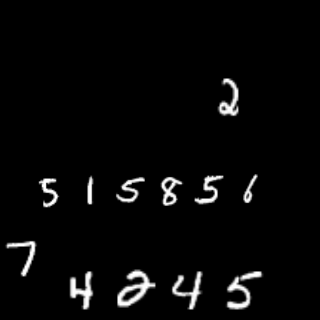 2
515856
7
4245